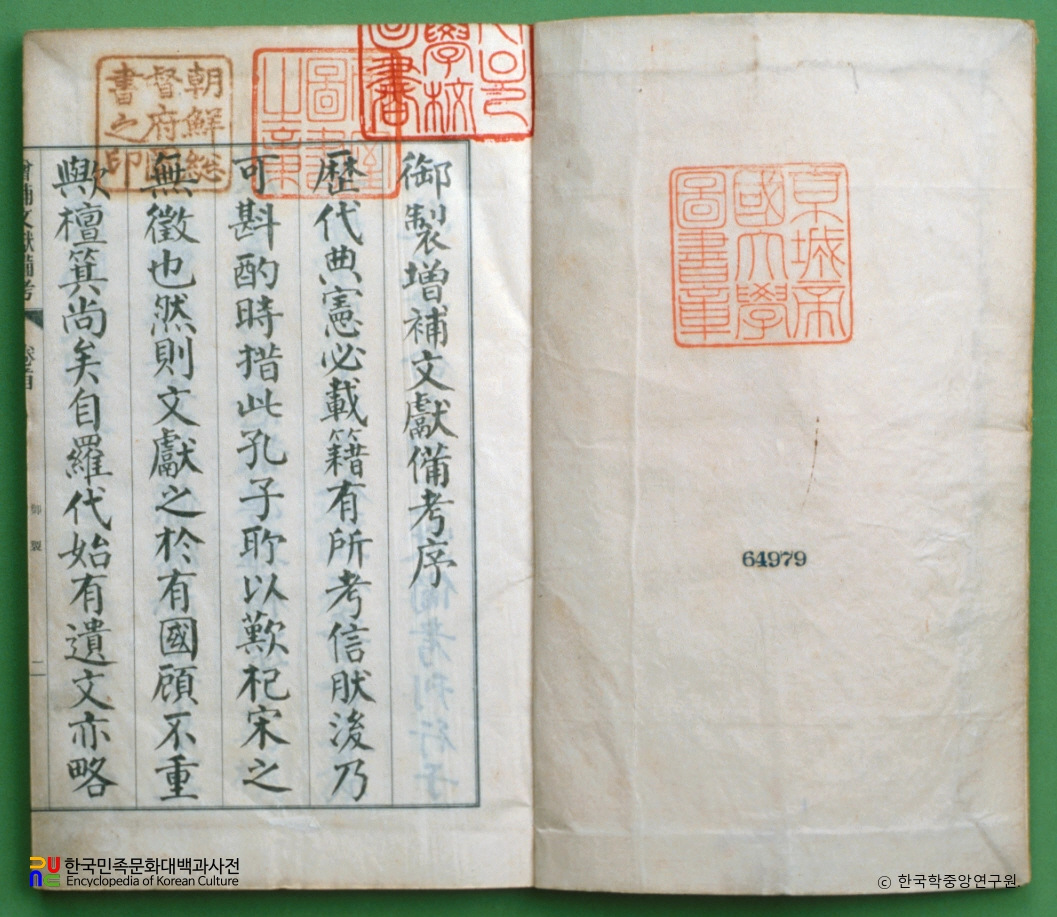 京城帝
國大學
圖書章
64979
御製增補文獻備考序
歷代典憲必載籍有所考信肰後乃
可斟酌時措此孔子所以歎杞宋之
無徵也然則文獻之於有國顧不重
歟檀箕尚矣自羅代始有遺文亦略
增補文獻備考
卷首
御製
二
朝鮮総
督府圖
書之印
한국민족문화대백과사전
Encyclopedia of Korean Culture
© 한국학중앙연구원